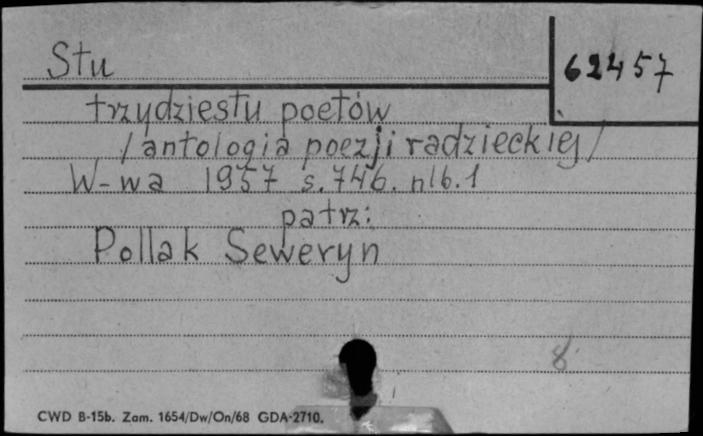 Stu
62457
trzydziestu poetów
/antologia poezji radzieckiej/
W-wa 1957 s. 746. nlb. 1
patrz:
Pollak Seweryn
8
CWD B-15b. Zam. 1654/Dw/On/68 GDA-2710.